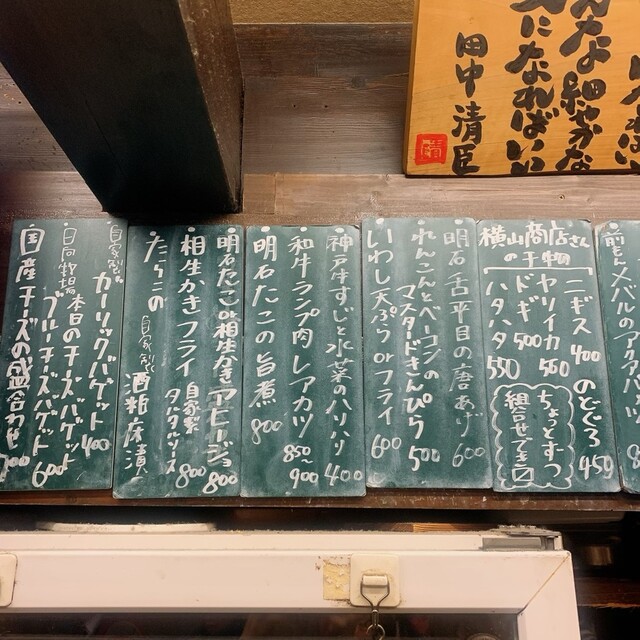 んなよ細やかな
気になればいい
田中清臣
前とメバルのアクアパ
横山商店さん
の干物
ニギス 400
ヤリイカ 500
ドギ 500
ハタハタ 550
のどぐろ 450
ちょっとずつ
組合せできます
明石舌平目の唐あげ 600
れんこんとベーコンの
マスタードきんぴら 500
いわし天ぷらorフライ 600
神戸牛すじと水菜のハリハリ 400
和牛ランプ肉レアカツ 850~900
明石たこの旨煮 800
明石たこor相生かきアヒージョ 800
相生かきフライ 自家製タルタルソース 800
たらこの自家製酒粕床漬
自家製ガーリックバゲット 400
本日のチーズバゲット
ブルーチーズバゲット 600
国産チーズの盛合わせ